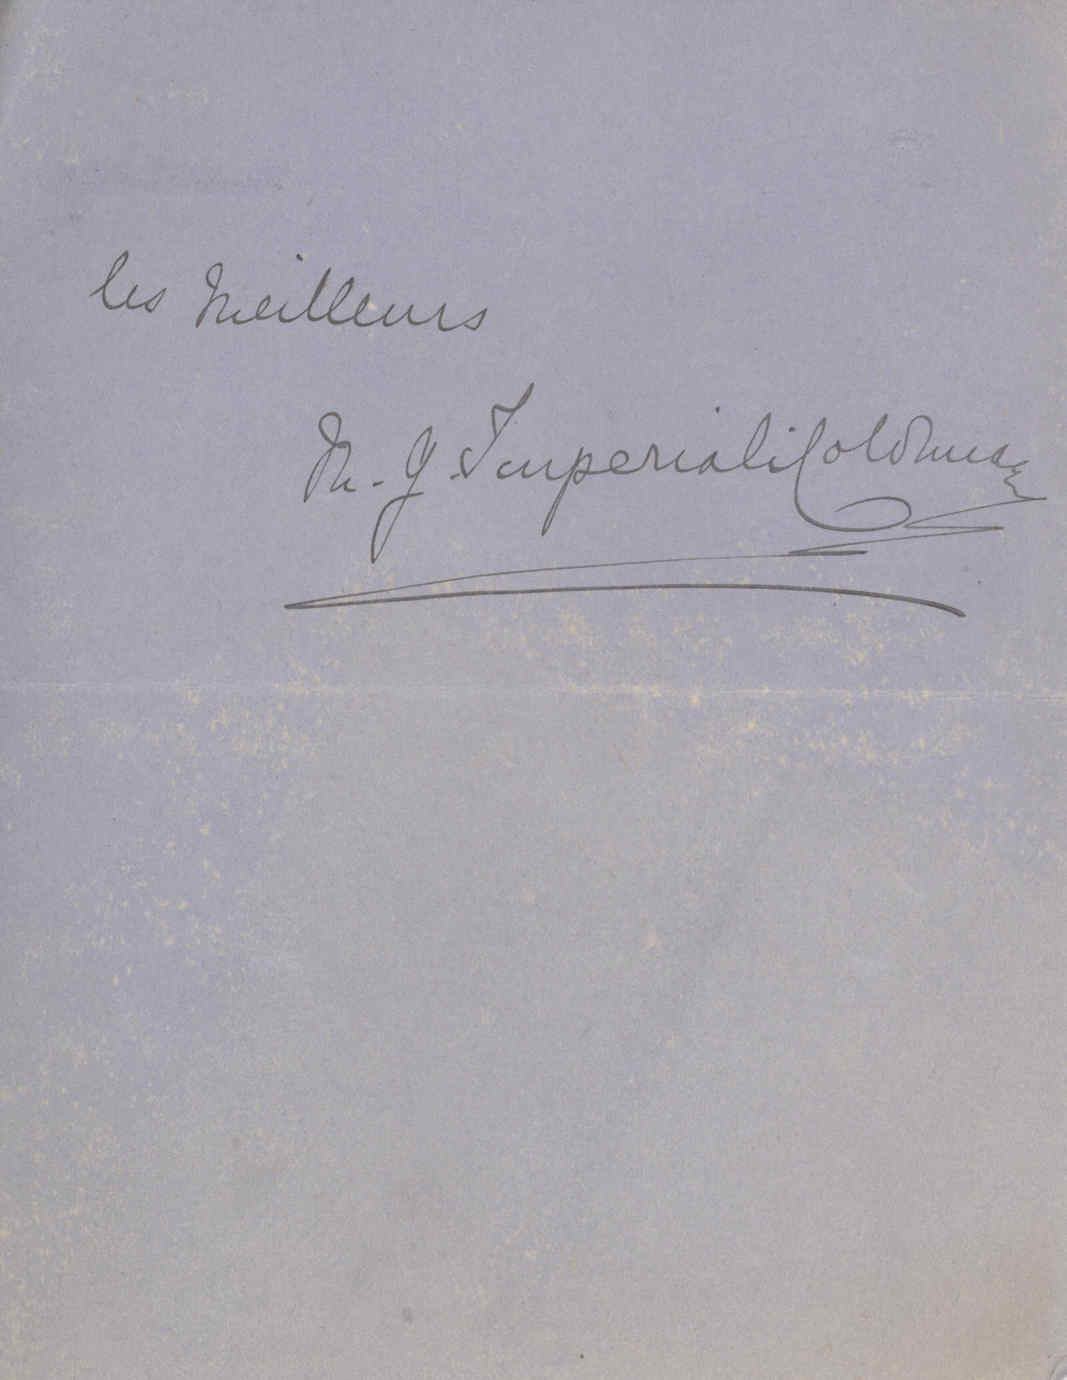 les meilleurs
M. G. Imperiali Colonna